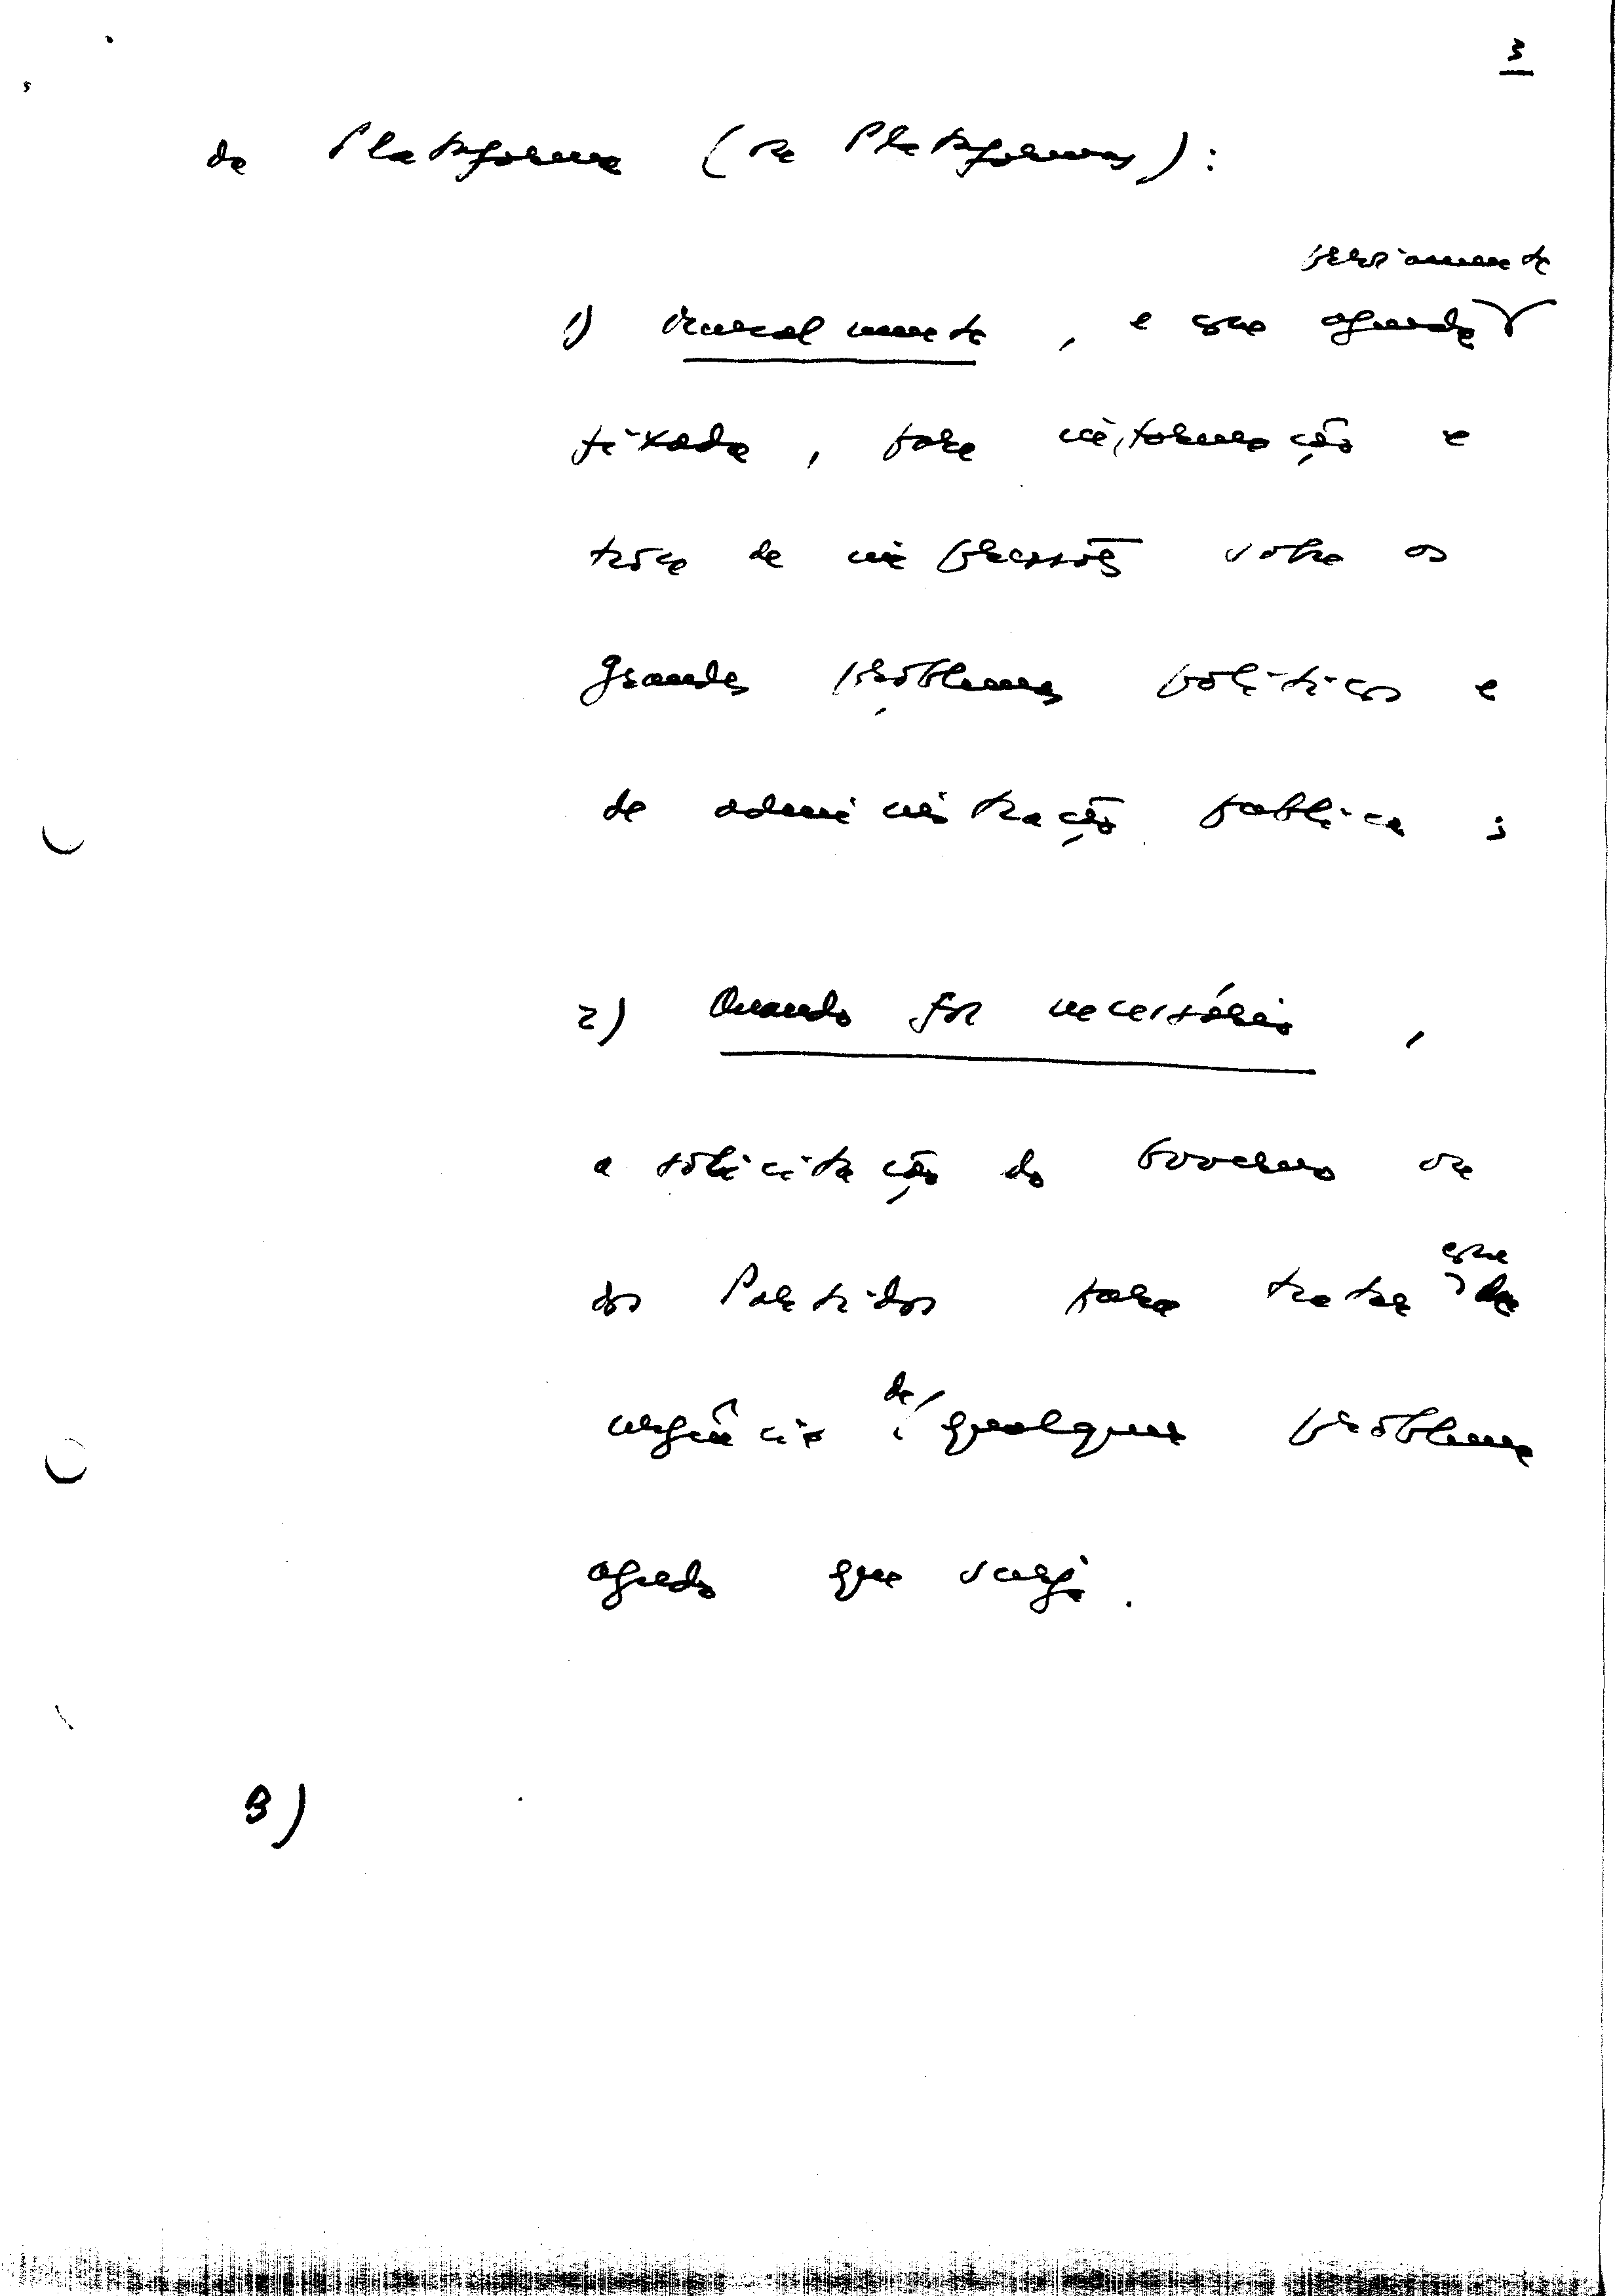 3
da Plataforma (ou Plataformas):
previamente
1) mensalmente, e com agenda
fixada, para informação e
troca de impressões sobre os
grandes problemas políticos e
de administração pública;
2) Quando for necessário,
a solicitação do Governo ou
dos Partidos para tratar com
urgência de qualquer problema
agudo que surja.
B)